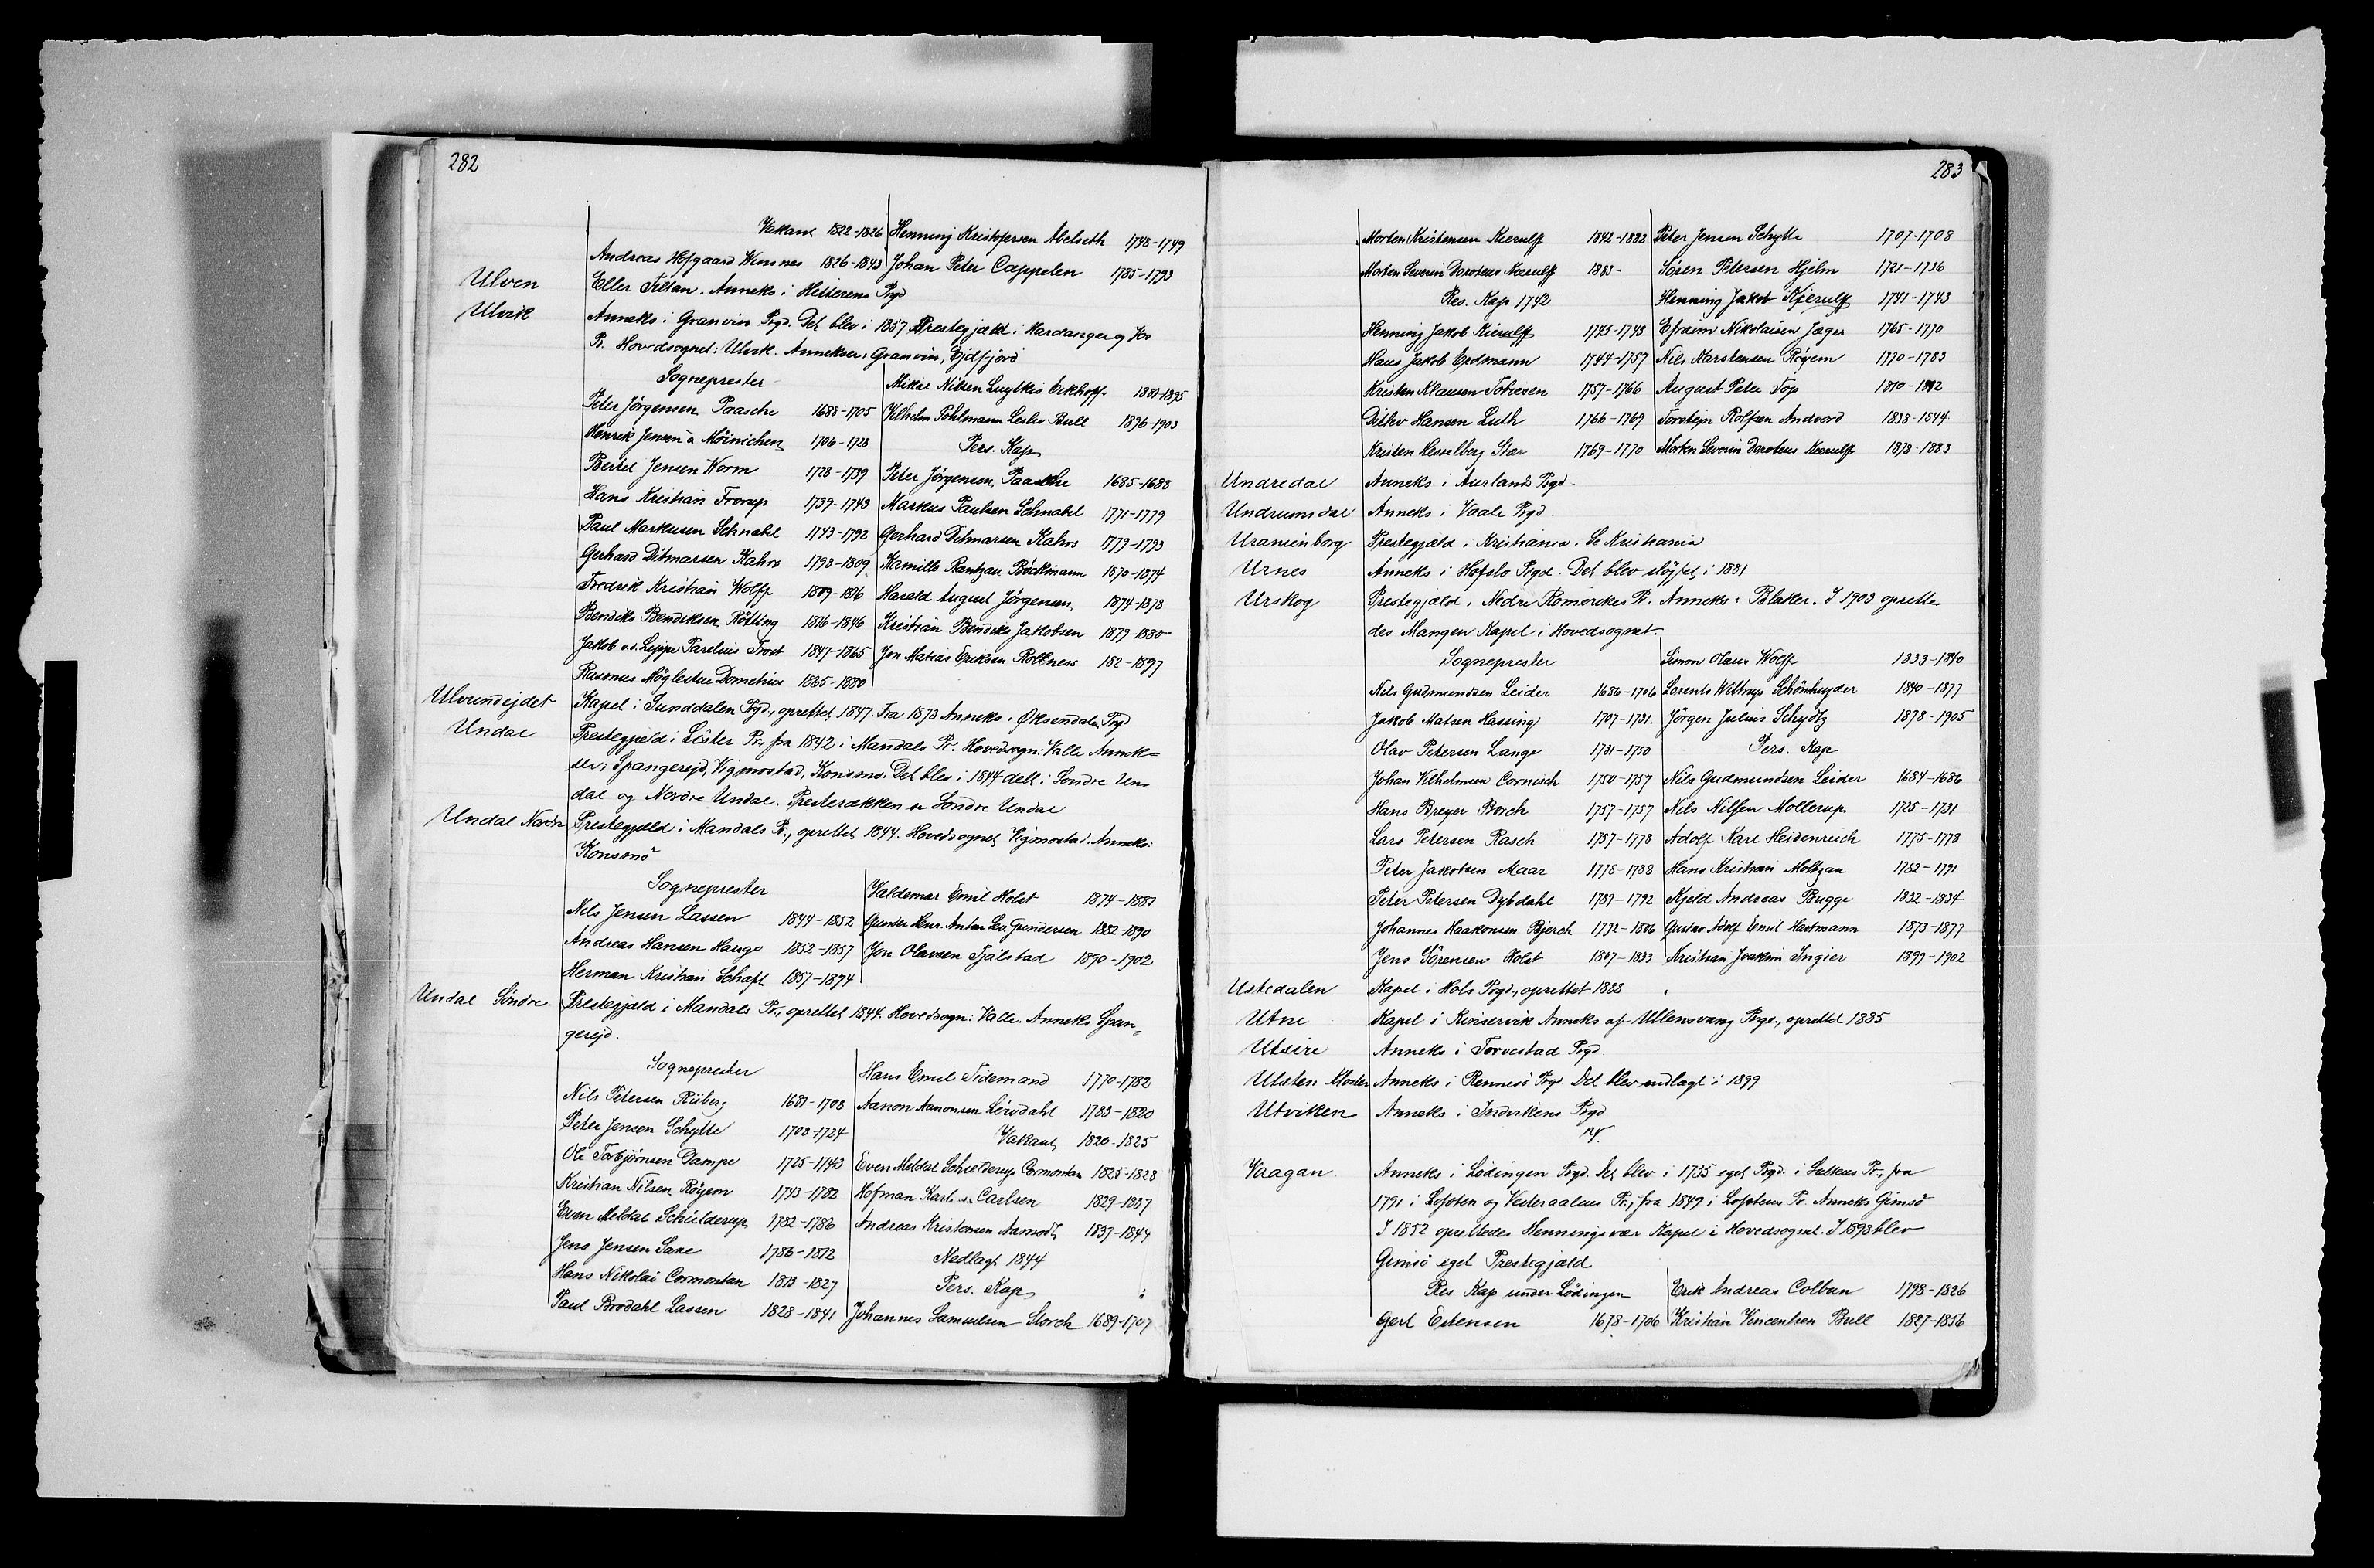 282
Vakant 1822-1826 Henning Kristofersen Abelseth 1748-1749
Andreas Hofgaard Winsnes 1826-1843 Johan Peter Cappelen 1785-1793
Ulven Eller Fillan. Anneks i Hitterens Pgd
Ulvik Anneks i Granvin Pgd. Det blev i 1857 Prestegjæld i Hardanger og Vos
Pr. Hovedsognet: Ulvik. Annekser: Granvin, Ejdfjord
Sogneprester Mikal Nilsen Luytkis Eckhoff 1881-1895
Peter Jörgensen Paasche 1688-1705 Vilhelm Pohlmann Lesler Bull 1896-1903
Henrik Jensen a Möinichen 1706-1728 Pers. Kap
Bertel Jensen Worm 1728-1739 Peter Jörgensen Paasche 1685-1688
Hans Kristian Frorup 1739-1743 Markus Paulsen Schnabel 1771-1779
Paul Markusen Schnabel 1743-1792 Gerhard Ditmarsen Kahrs 1779-1793
Gerhard Ditmarsen Kahrs 1793-1809 Kamillo Rantzau Böckmann 1870-1874
Fredrik Kristian Wolff 1809-1816 Harald August Jörgensen 1874-1878
Bendiks Bendiksen Rötting 1816-1846 Kristian Bendiks Jakobsen 1879-1880
Jakob v.d. Lippe Parelius Frost 1847-1865 Jon Matias Eriksen Rolfsness 182-1897
Rasmus Möglestue Dometius 1865-1880
Ulvundejdet Kapel i Sunddalen Pgd., oprettet 1847. Fra 1873 Anneks i Øksendalen Pgd
Undal Prestegjæld i Lister Pr., fra 1842 i Mandals Pr. Hovedsogn: Valle Annek=
ser: Spangerejd, Vigmostad, Konsmo. Det blev i 1844 delt i Sondre Un=
dal og Nordre Undal. Presterækken se Sondre Undal
Undal Nordre Prestegjæld i Mandals Pr., oprettet 1844. Hovedsognet Vigmostad. Anneks:
Konsmo
Sogneprester Valdemar Emil Holst 1874-1881
Nils Jensen Lassen 1844-1852 Gunder Henr. Anton Lev. Gundersen 1882-1890
Andreas Hansen Hauge 1852-1857 Jon Olavsen Fjälstad 1890-1902
Herman Kristian Schaft 1857-1874
Undal Söndre Prestegjæld i Mandals Pr., oprettet 1844. Hovedsogn: Valle. Anneks Span=
gerejd.
Sogneprester Hans Emil Tidemand 1770-1782
Nils Petersen Riiberg 1681-1708 Aanon Aanonsen Löwdahl 1783-1820
Peter Jensen Schytte 1708-1724 Vakant 1820-1825
Ole Torbjörnsen Dampe 1725-1743 Even Meldal Schielderup Cormontan 1825-1828
Kristian Nilsen Röyem 1743-1782 Hofman Karls. Carlsen 1829-1837
Even Meldal Schielderup 1782-1786 Andreas Kristensen Aamodt 1837-1844
Jens Jensen Sane 1786-1812 Nedlagt 1844
Hans Nikolai Cormontan 1813-1827 Pers. Kap
Paul Brodahl Lassen 1828-1841 Johannes Samuelsen Storch 1689-1707
283
Morten Kristensen Kierulff 1842-1882 Peter Jensen Schytte 1707-1708
Morten Severin Doroteus Kierulff 1883- Sören Petersen Hjelm 1721-1736
Res. Kap 1742 Henning Jakob Kjerulff 1741-1743
Henning Jakob Kierulff 1743-1743 Efraim Nikolaisen Jæger 1765-1770
Hans Jakob Erdmann 1744-1757 Nils Karstensen Röyem 1770-1783
Kristen Klausen Tobiesen 1757-1766 August Peter Top 1810-1812
Ditlev Hansen Luth 1766-1769 Torstejn Rolfsen Andvord 1838-1844
Kristen Hesselberg Stær 1769-1770 Morten Severin Doroteus Kierulff 1873-1883
Undredal Anneks i Aurlands Pgd.
Undrumsdal Anneks i Vaale Pgd.
Uranienborg Prestegjæld i Kristiania. Se Kristiania
Urnes Anneks i Hafslo Pgd. Det blev slöjfet i 1881
Urskog Prestegjæld i Nedre Romerikes Pr. Anneks: Blaker. I 1903 oprette
des Mangen Kapel i Hovedsognet.
Sogneprester Simon Olaus Wolff 1833-1840
Nils Gudmundsen Leider 1686-1706 Larents Wittrup Schönheyder 1840-1877
Jakob Matsen Hassing 1707-1731. Jörgen Julius Schydtz 1878-1905
Olav Petersen Lange 1731-1750 Pers. Kap
Johan Vilhelmsen Cornisch 1750-1757 Nils Gudmundsen Leider 1684-1686
Hans Breyer Bosch 1757-1757 Nils Nilssen Mollerup 1725-1731
Lars Petersen Rasch 1757-1778 Adolf Karl Heidenreich 1775-1778
Peter Jakobsen Maar 1778-1788 Hans Kristian Moltzau 1782-1791
Peter Petersen Dybdahl 1789-1792 Kjeld Andreas Bugge 1832-1834
Johannes Haakonsen Bjerch 1792-1806 Gustav Adolf Emil Hartmann 1873-1877
Jens Sörensen Holst 1807-1833 Kristian Joakim Ingier 1899-1902
Ustedalen Kapel i Hols Pgd., oprettet 1888
Utne Kapel i Kinservik Anneks af Ullensvang Pgd., oprettet 1885
Utsire Anneks i Torvestad Pgd.
Utsten Kloster Anneks i Rennesö Pgd. Det blev nedlagt i 1899
Utviken Anneks i Indvikens Pgd
V.
Vaagan Anneks i Lödingen Pgd. Det blev i 1735 eget Pgd. i Saltens Pr., fra
1791 i Lofoten og Vesteraalens Pr., fra 1849 i Lofotens Pr. Anneks Gimsö
I 1852 oprettedes Henningsvær Kapel i Hovedsognet. I 1898 blev
Gimsö eget Prestegjæld
Res. Kap under Lödingen Erik Andreas Colban 1798-1826
Gert Estensen 1678-1706 Kristian Vincentsen Bull 1827-1856